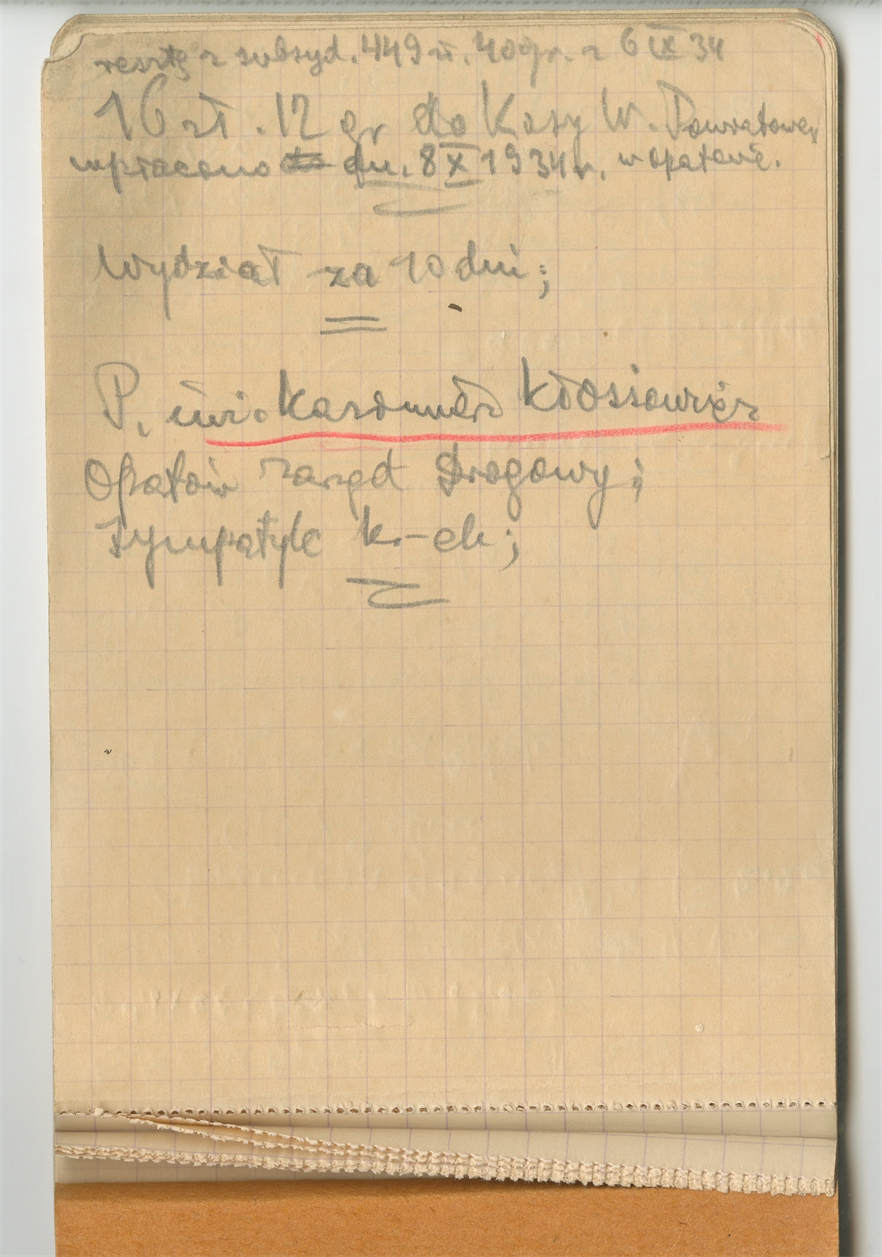 resztę z subsyd. 449 zł. 40 gr. z 6 IX 34
16 zł. 12 gr do Kasy W. Powiatowej
wpłacono dn. 8 X 1934 r. w Opatowie.
Wydział za 10 dni;
P. inż. Kazimierz Kłossowicz
Opatów Zarząd Drogowy;
Sympatyk kr-ch;